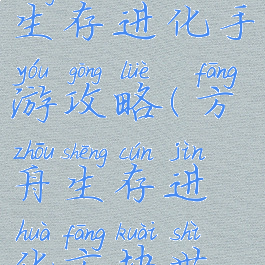 生存进化手
yóu gōng lüè fāng
游攻略(方
zhōu shēng cún jìn
舟生存进
huà fāng kuài shì
化方块世